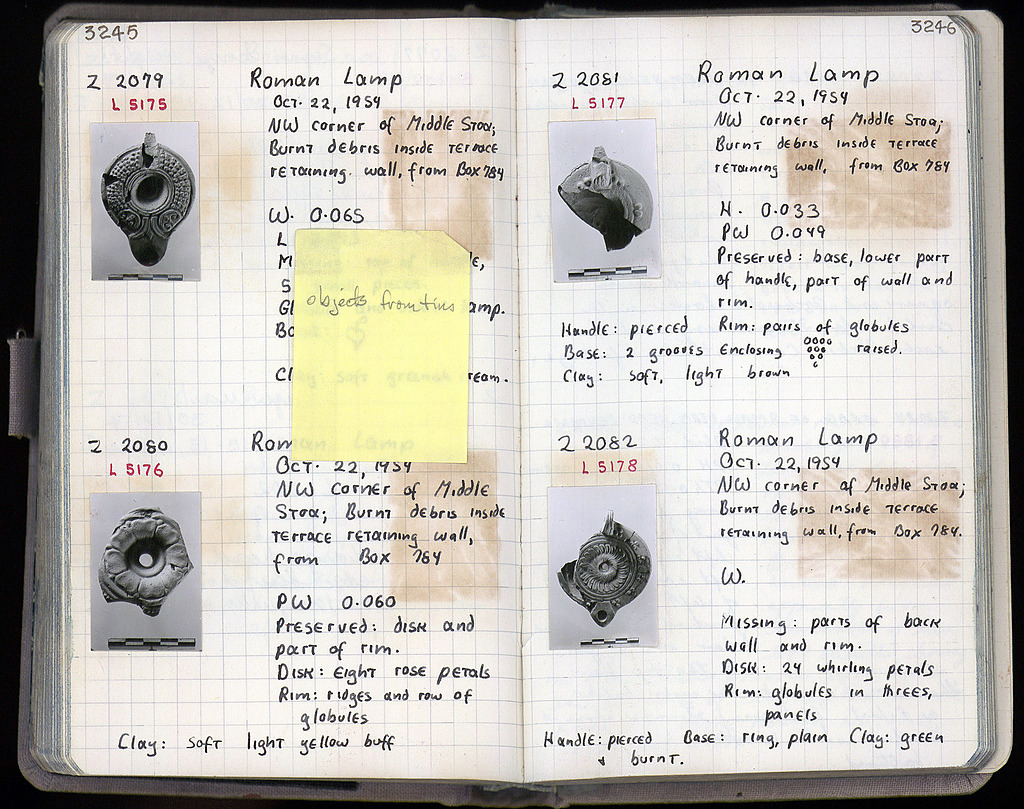 3245
Z 2079 Roman Lamp
L 5175
Oct. 22, 1954
NW corner of Middle Stoa;
Burnt debris inside terrace
retaining wall, from Box 784
W. 0.065
L
M e,
S
Gl amp.
Bo
Cl ream.
objects from this
Z 2080 Roman Lamp
L 5176
Oct. 22, 1954
NW corner of Middle
Stoa; Burnt debris inside
terrace retaining wall,
from Box 784
PW 0.060
Preserved: disk and
part of rim.
Disk: eight rose petals
Rim: ridges and row of
globules
Clay: soft light yellow buff
3246
Z 2081 Roman Lamp
L 5177
Oct. 22, 1954
NW corner of Middle Stoa;
Burnt debris inside terrace
retaining wall, from Box 784
H. 0.033
PW 0.049
Preserved: base, lower part
of handle, part of wall and
rim.
Handle: pierced Rim: pairs of globules
Base: 2 grooves enclosing raised.
Clay: soft, light brown
Z 2082 Roman Lamp
L 5178
Oct. 22, 1954
NW corner of Middle Stoa;
Burnt debris inside terrace
retaining wall, from Box 784.
W.
Missing: parts of back
wall and rim.
Disk: 24 whirling petals
Rim: globules in threes,
panels
Handle: pierced Base: ring, plain Clay: green
& burnt.